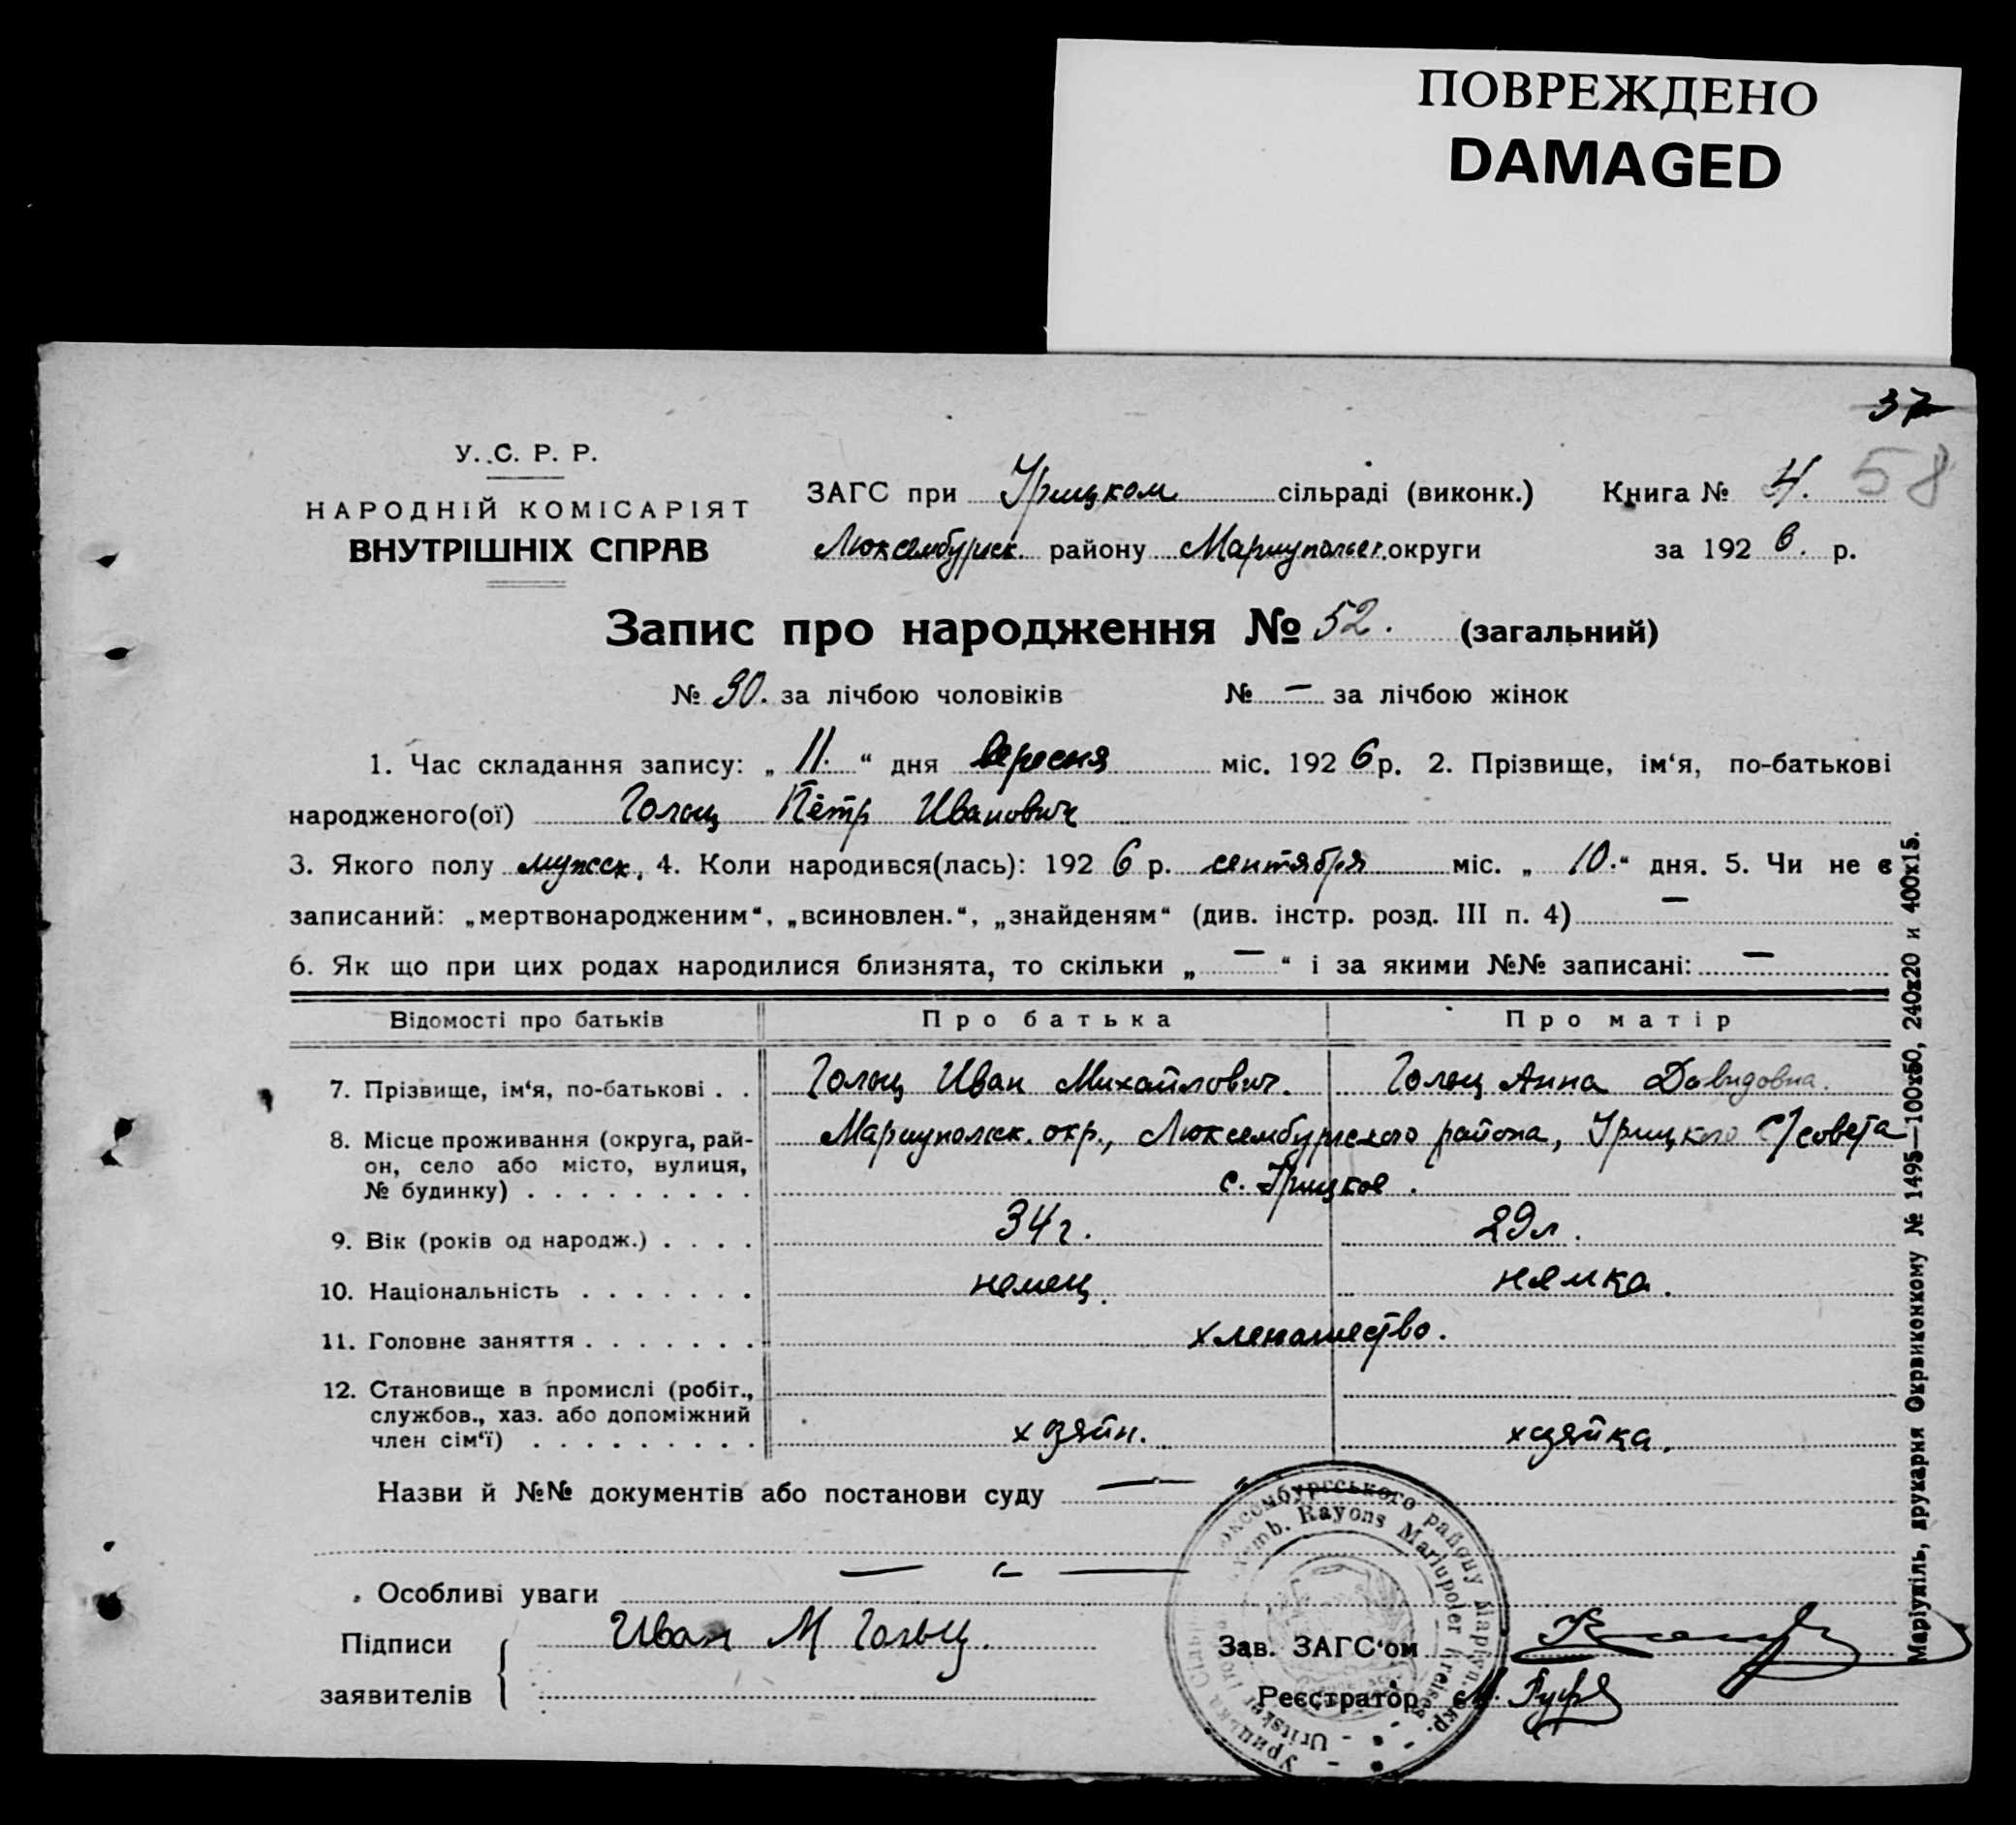 ПОВРЕЖДЕНО
DAMAGED
37
58
У. С. Р. Р.
НАРОДНІЙ КОМІСАРІЯТ
ВНУТРІШНІХ СПРАВ
ЗАГС при Урицком сільраді (виконк.) Книга № 4.
Люксембургск. району Мариупольск. округи за 192 6. р.
Запис про народження № 52. (загальний)
№ 30. за лічбою чоловіків № — за лічбою жінок
1. Час складання запису: „ 11. “ дня вересня міс. 192 6 р. 2. Прізвище, ім‘я, по-батькові
народженого(ої) Гольц Пётр Иванович
3. Якого полу мужск. 4. Коли народився(лась): 192 6 р. сентября міс. „ 10. “ дня. 5. Чи не є
записаний: „мертвонародженим“, „всиновлен.“, „знайденям“ (див. інстр. розд. III п. 4) —
6. Як що при цих родах народилися близнята, то скільки „ — “ і за якими №№ записані: —
Відомості про батьків Про батька Про матір
7. Прізвище, ім‘я, по-батькові . . Гольц Иван Михайлович. Гольц Анна Давидовна.
8. Місце проживання (округа, рай- Мариупольск. окр., Люксембургского района, Урицкого с/совета
он, село або місто, вулиця,
№ будинку) . . . . . . . . . с. Урицкое.
9. Вік (років од народж.) . . . . 34 г. 29 л.
10. Національність . . . . . . . немец. немка.
11. Головне заняття . . . . . . . хлепашество.
12. Становище в промислі (робіт.,
службов., хаз. або допоміжний
член сім‘ї) . . . . . . . . . хозяйн. хозяйка.
Назви й №№ документів або постанови суду —
Особливі уваги — — —
Підписи Иван М Гольц. Зав. ЗАГС‘ом
заявителів Реєстратор М.
Люксембургського району Маріуп. окр.
Luxemb. Rayons Mariupoler Kreises
Урицька
Uritsker
Маріупіль, друкарня Окрвиконкому № 1495—100х50, 240х20 и 400х15.